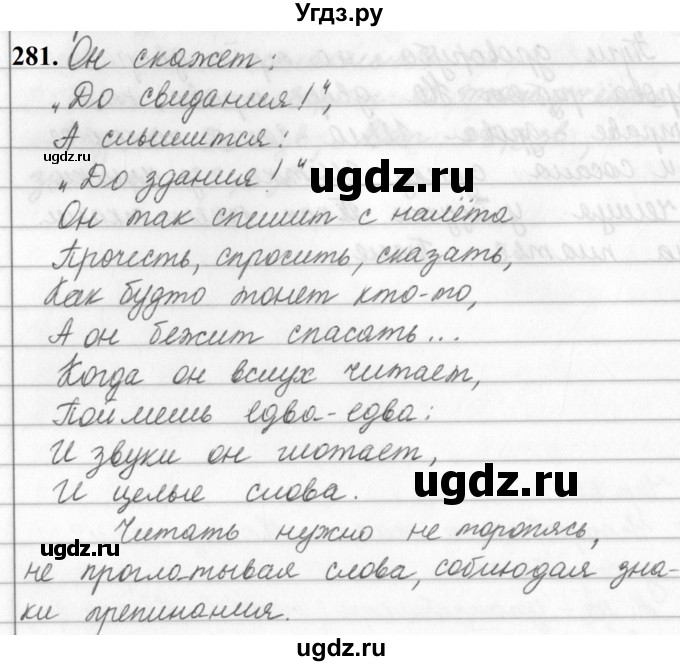 Угдз.ру
281. Он скажет:
„До свидания!“,
А слышится:
„До здания!“
Он так спешит с налёта
Прочесть, спросить, сказать,
Как будто тонет кто-то,
А он бежит спасать...
Когда он вслух читает,
Поймёшь едва-едва:
И звуки он глотает,
И целые слова.
Читать нужно не торопясь,
не проглатывая слова, соблюдая зна-
ки препинания.
ugdz.ru
ugdz.ru
ugdz.ru
ugdz.ru
ugdz.ru